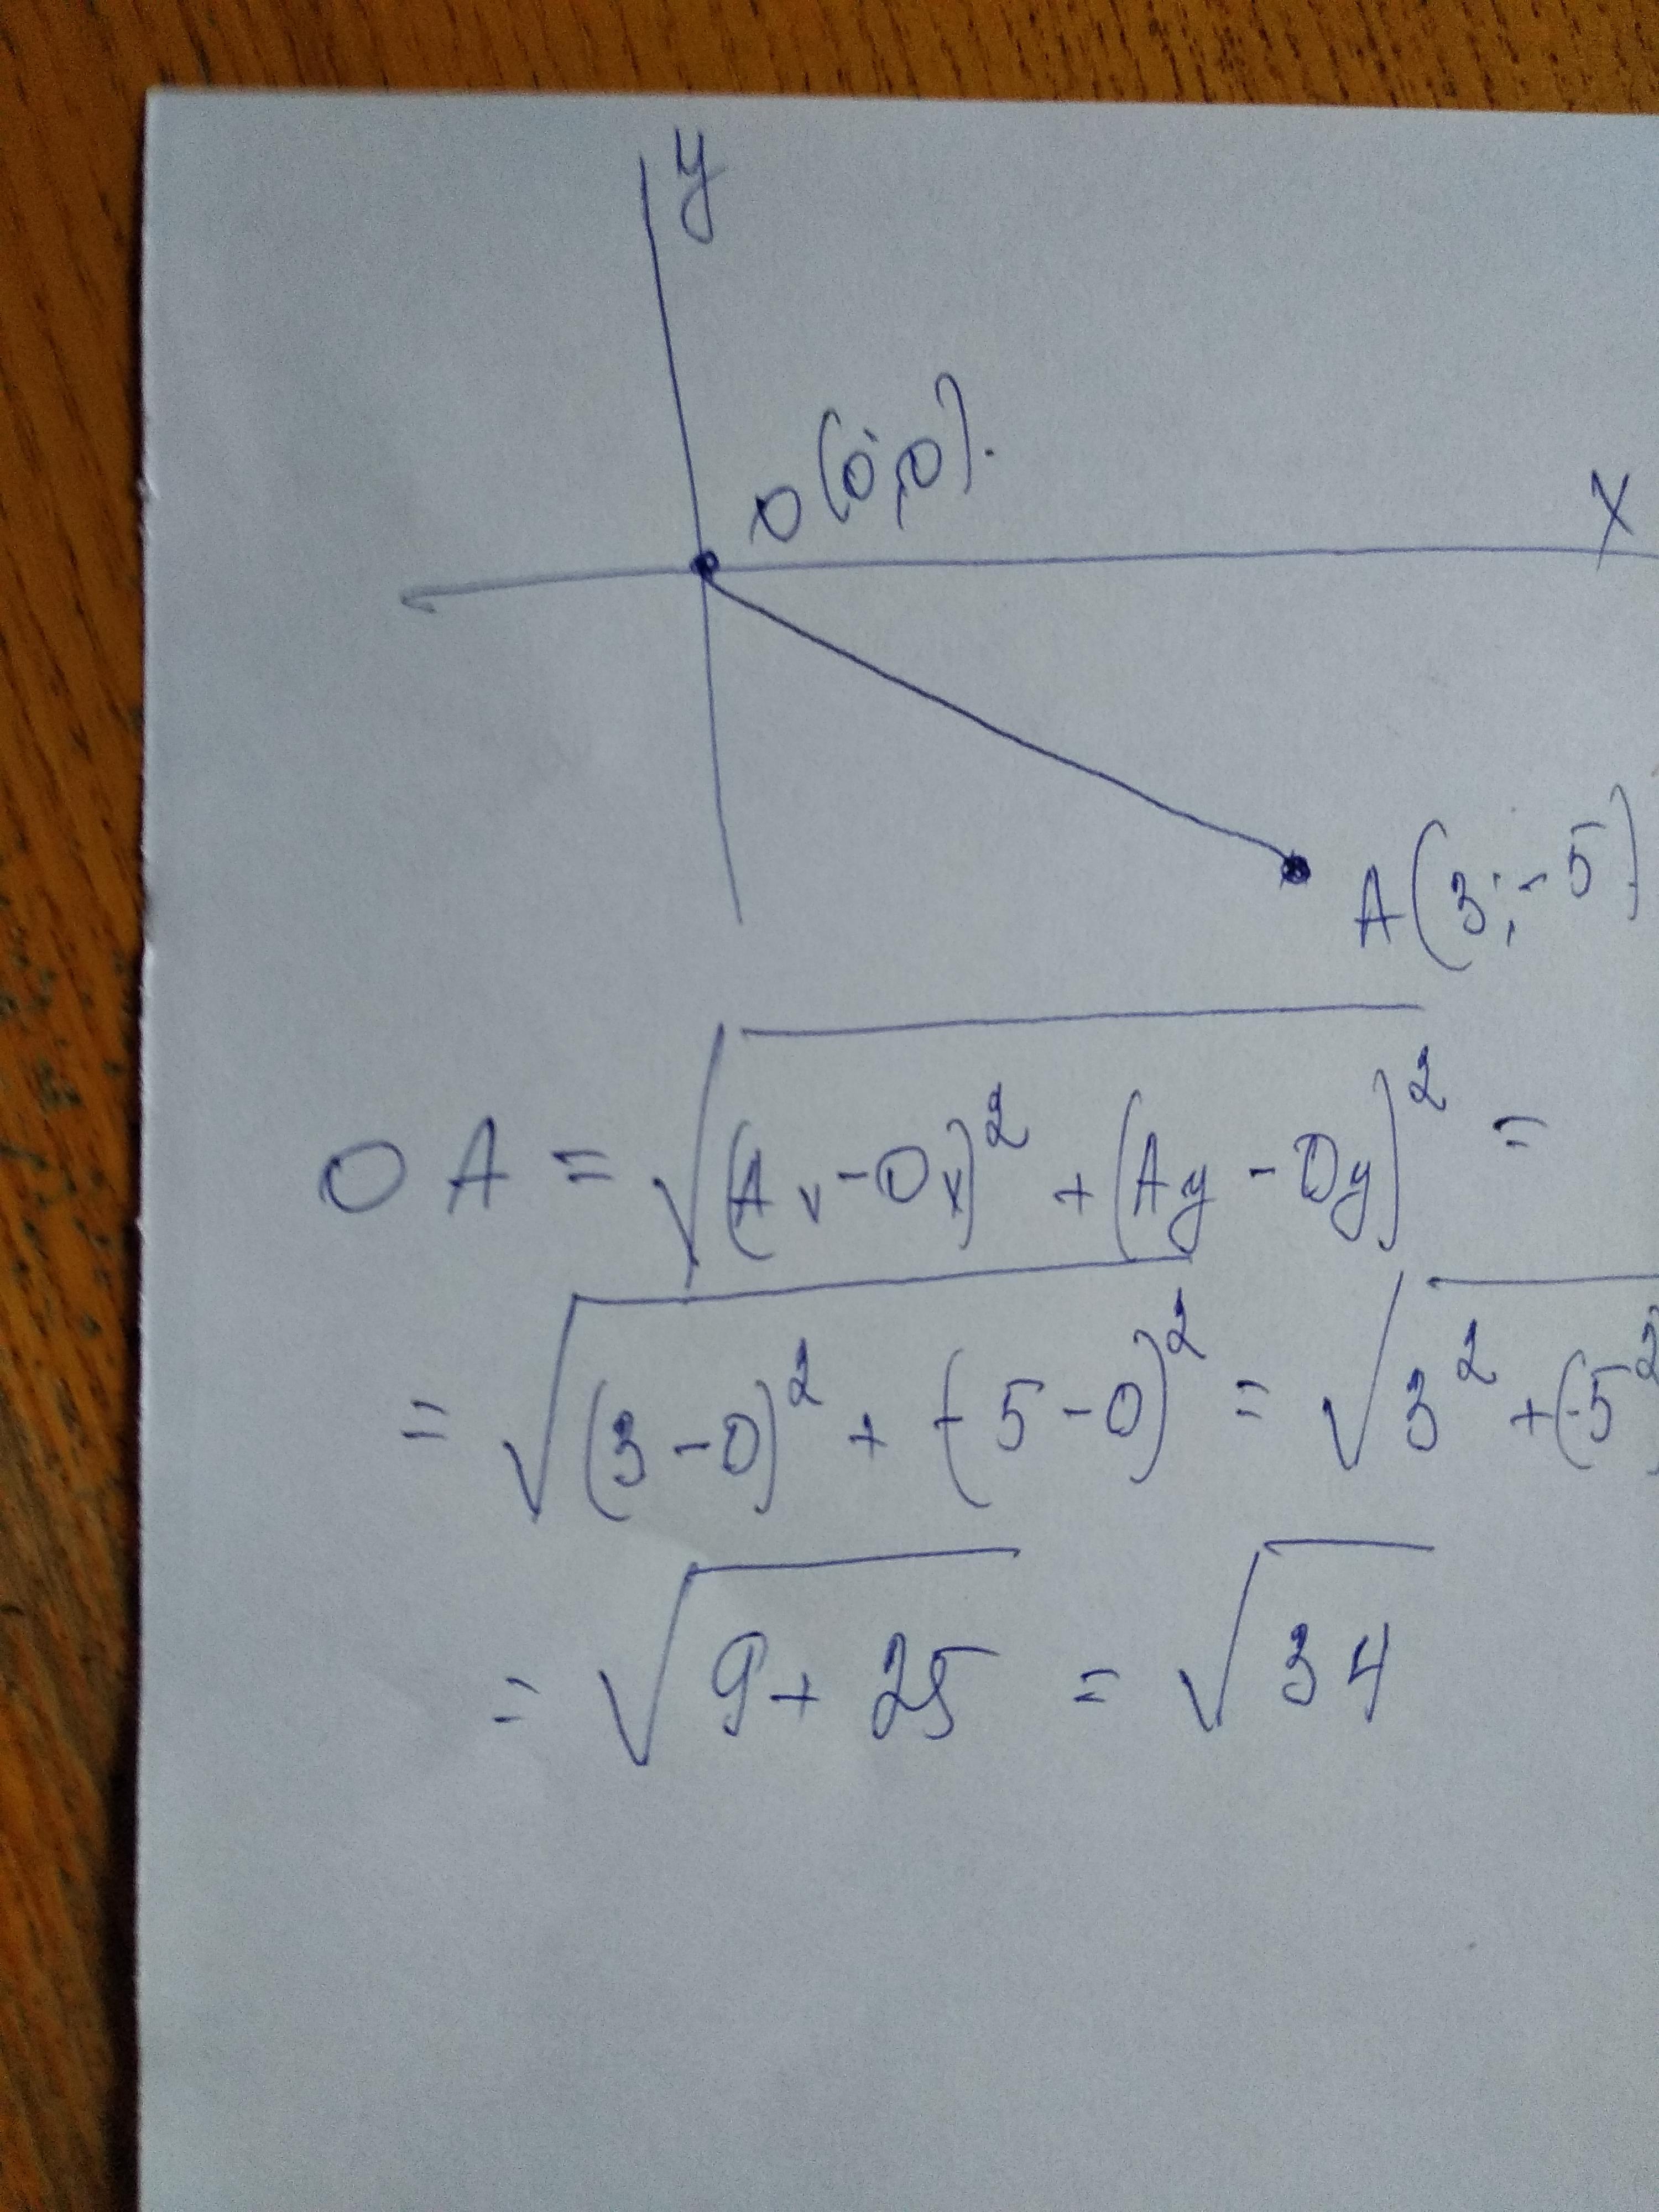 y
O(0;0).
x
A(3;-5)
OA = √(Ax-Ox)² + (Ay-Oy)² =
= √(3-0)² + (-5-0)² = √3² + (-5²
= √9+25 = √34